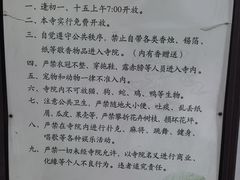 一、逢初一、十五上午7:00开放。
二、本寺实行免费开放。
三、自觉遵守公共秩序，禁止自带各类香烛、锡箔、
纸等敬香物品进入寺院。（内有香赠送）
四、严禁衣冠不整、穿拖鞋、露赤膊等人员进入寺内。
五、宠物和动物一律不准入内。
六、寺院内不可放猫、狗、蛇、鸡、鸭等生物。
七、注意公共卫生，严禁随地大小便、吐痰、乱丢纸
屑、瓜皮、果壳等，严禁攀折花卉树枝、损坏花坪。
八、严禁在寺院内进行扑克、麻将、跳舞、健身、
唱歌等各种娱乐活动。
九、严禁一切未经寺院允许，以寺院名义进行商业、
化缘等个人不良行为。违者追究责任。